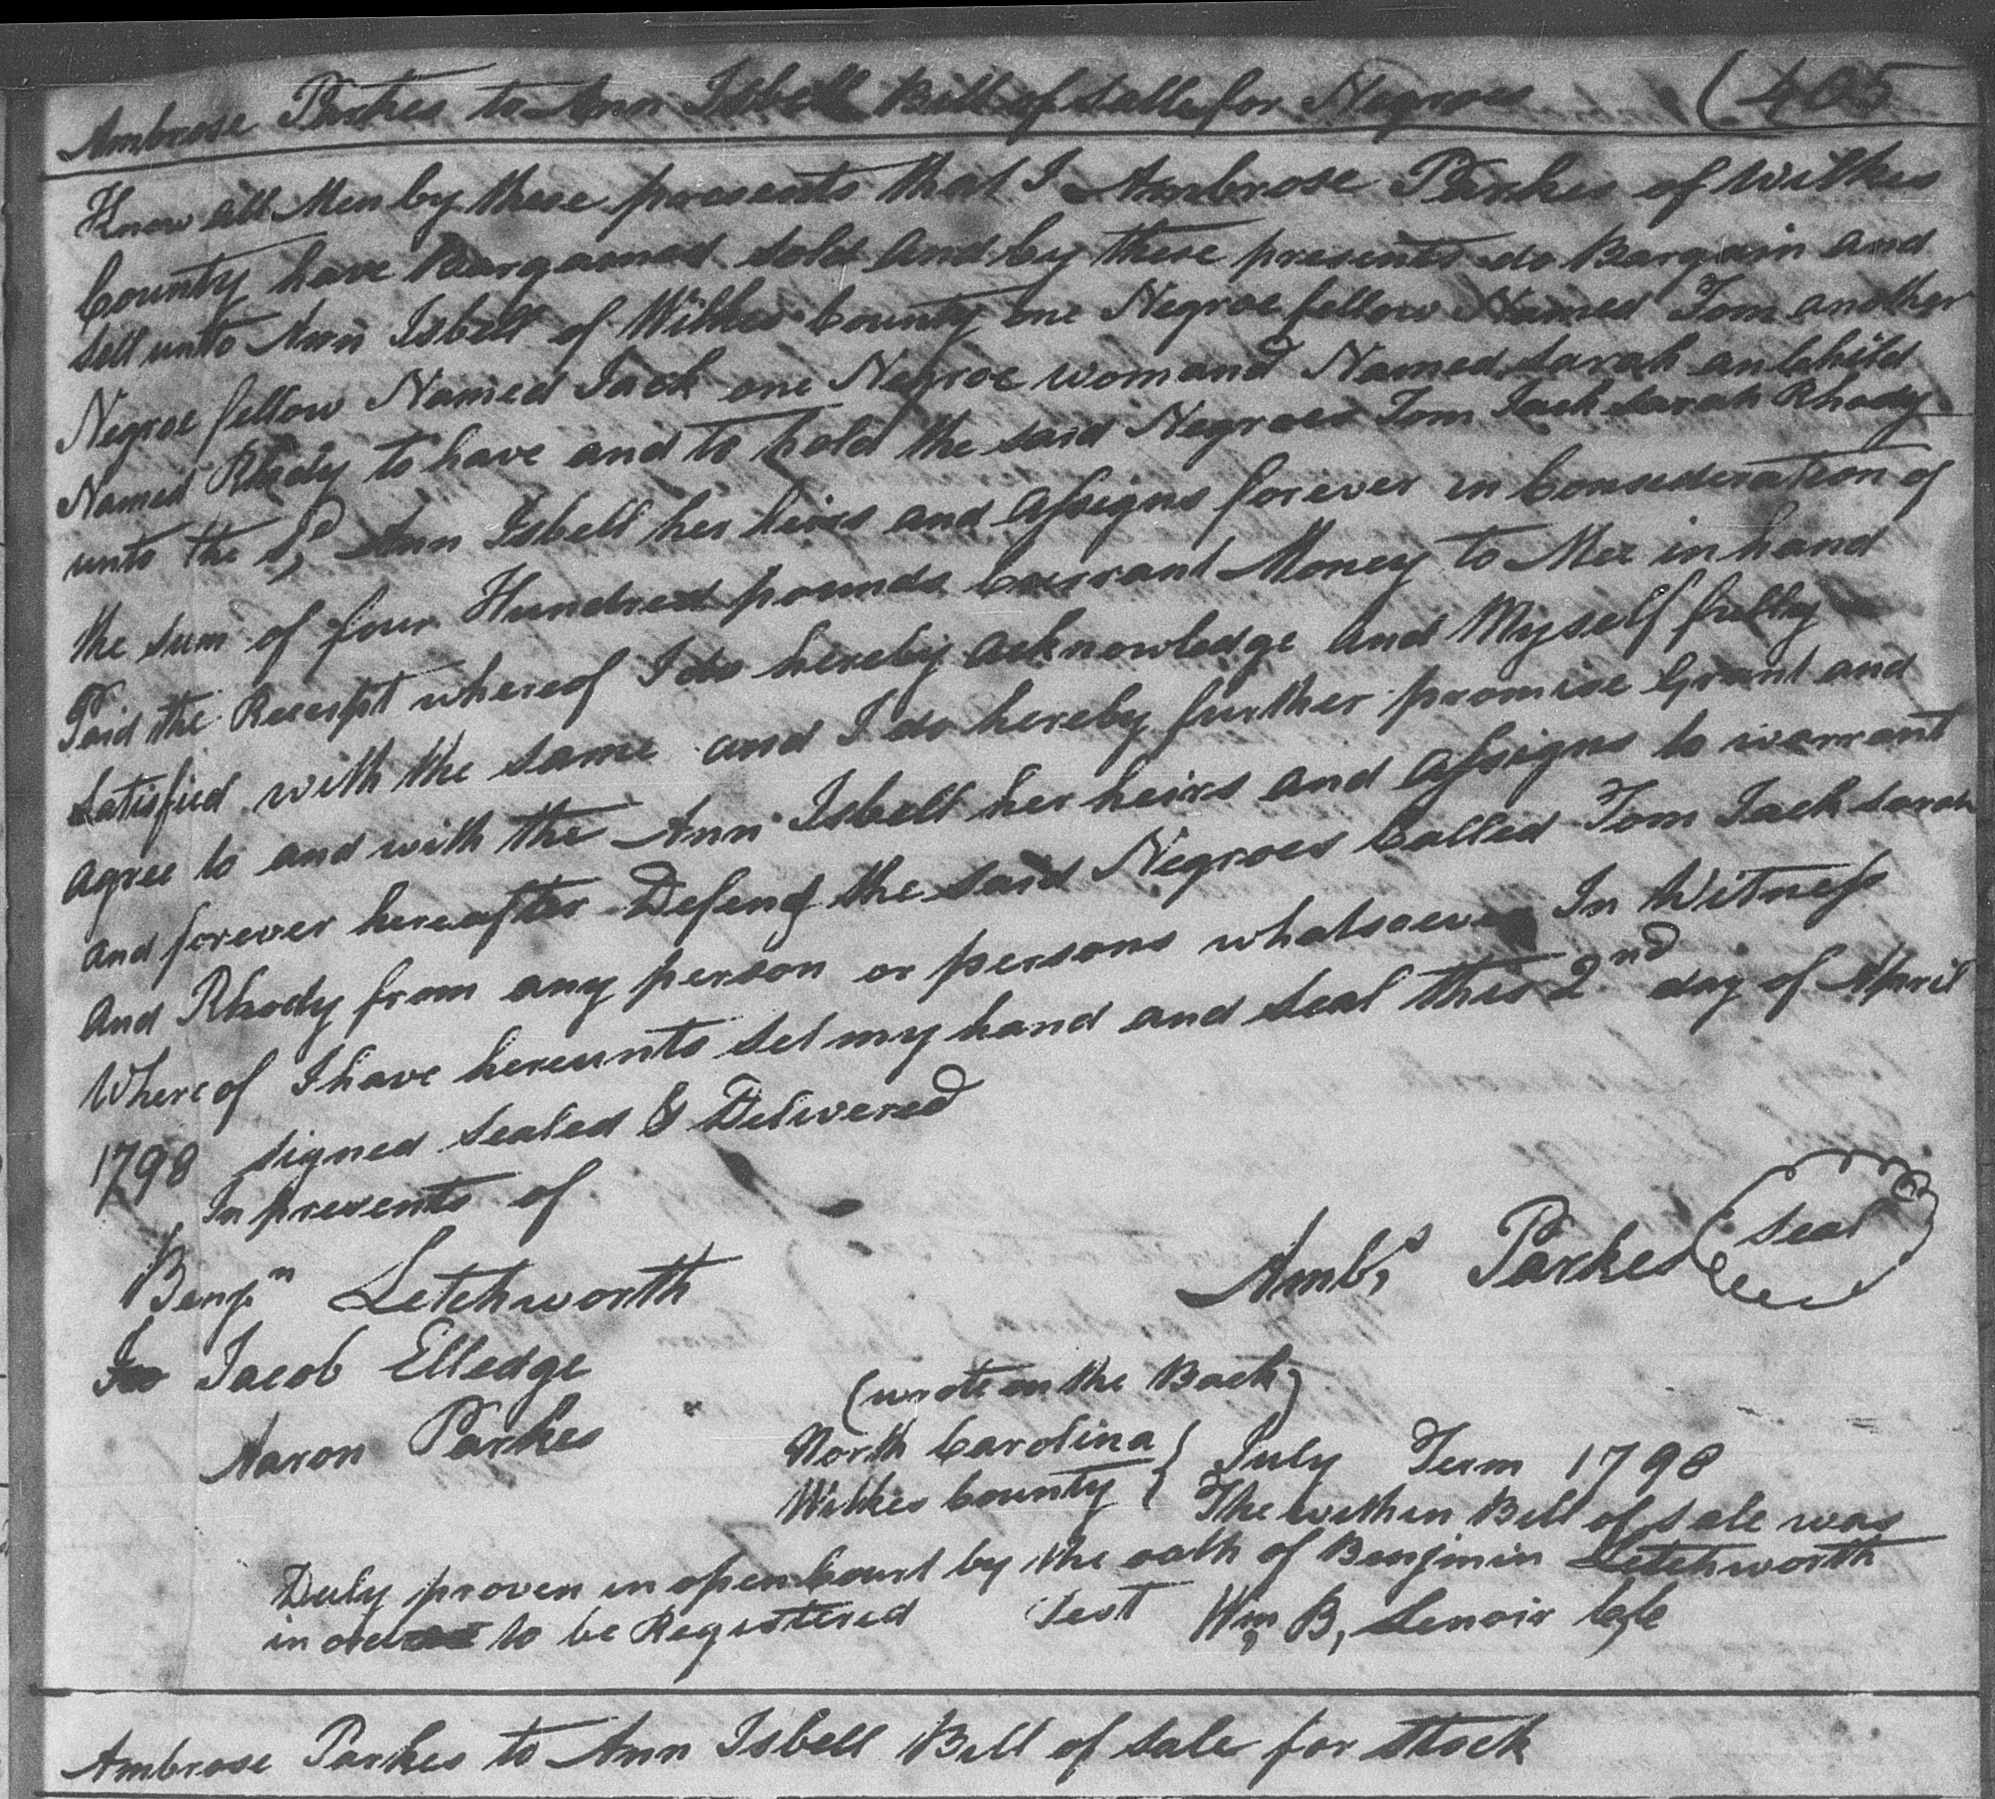 Ambrose Parkes to Ann Isbell Bill of salle for Negroes (405
Know all Men by these presents that I Ambrose Parkes of Wilkes
County have Bargained sold and by these presents do Bargain and
sell unto Ann Isbell of Wilkes County one Negroe fellow Named Tom another
Negroe fellow Named Jack one Negroe womand Named sarah an Child
Named Rhody to have and to hold the said Negroes Tom Jack sarah Rhody
unto the Sd, Ann Isbell her heirs and assigns forever in Consederation of
the sum of four Hundred pounds Currant Money to Mee in hand
Paid the Receipt whereof I do hereby acknowledge and Myself fully
satisfied with the same and I do hereby further promise Grant and
agree to and with the Ann Isbell her heirs and assigns to warrant
and forever hereafter Defend the said Negroes Called Tom Jack sarah
and Rhody from any person or persons whatsoever In Witness
Whereof I have hereunto set my hand and seal this 2nd day of April
1798 signed sealed & Delivered
In presents of
Benjn Letchworth
Ambs, Parkes seal
Jacob Elledge
Aaron Parkes
(wrote on the Back)
North Carolina } July Term 1798
Wilkes County } The within Bill of sale was
Duly proven in open Court by the oath of Benjmin Letchworth
in order to be Registered Test Wm B, Lenoir C,C
Ambrose Parkes to Ann Isbell Bill of sale for stock